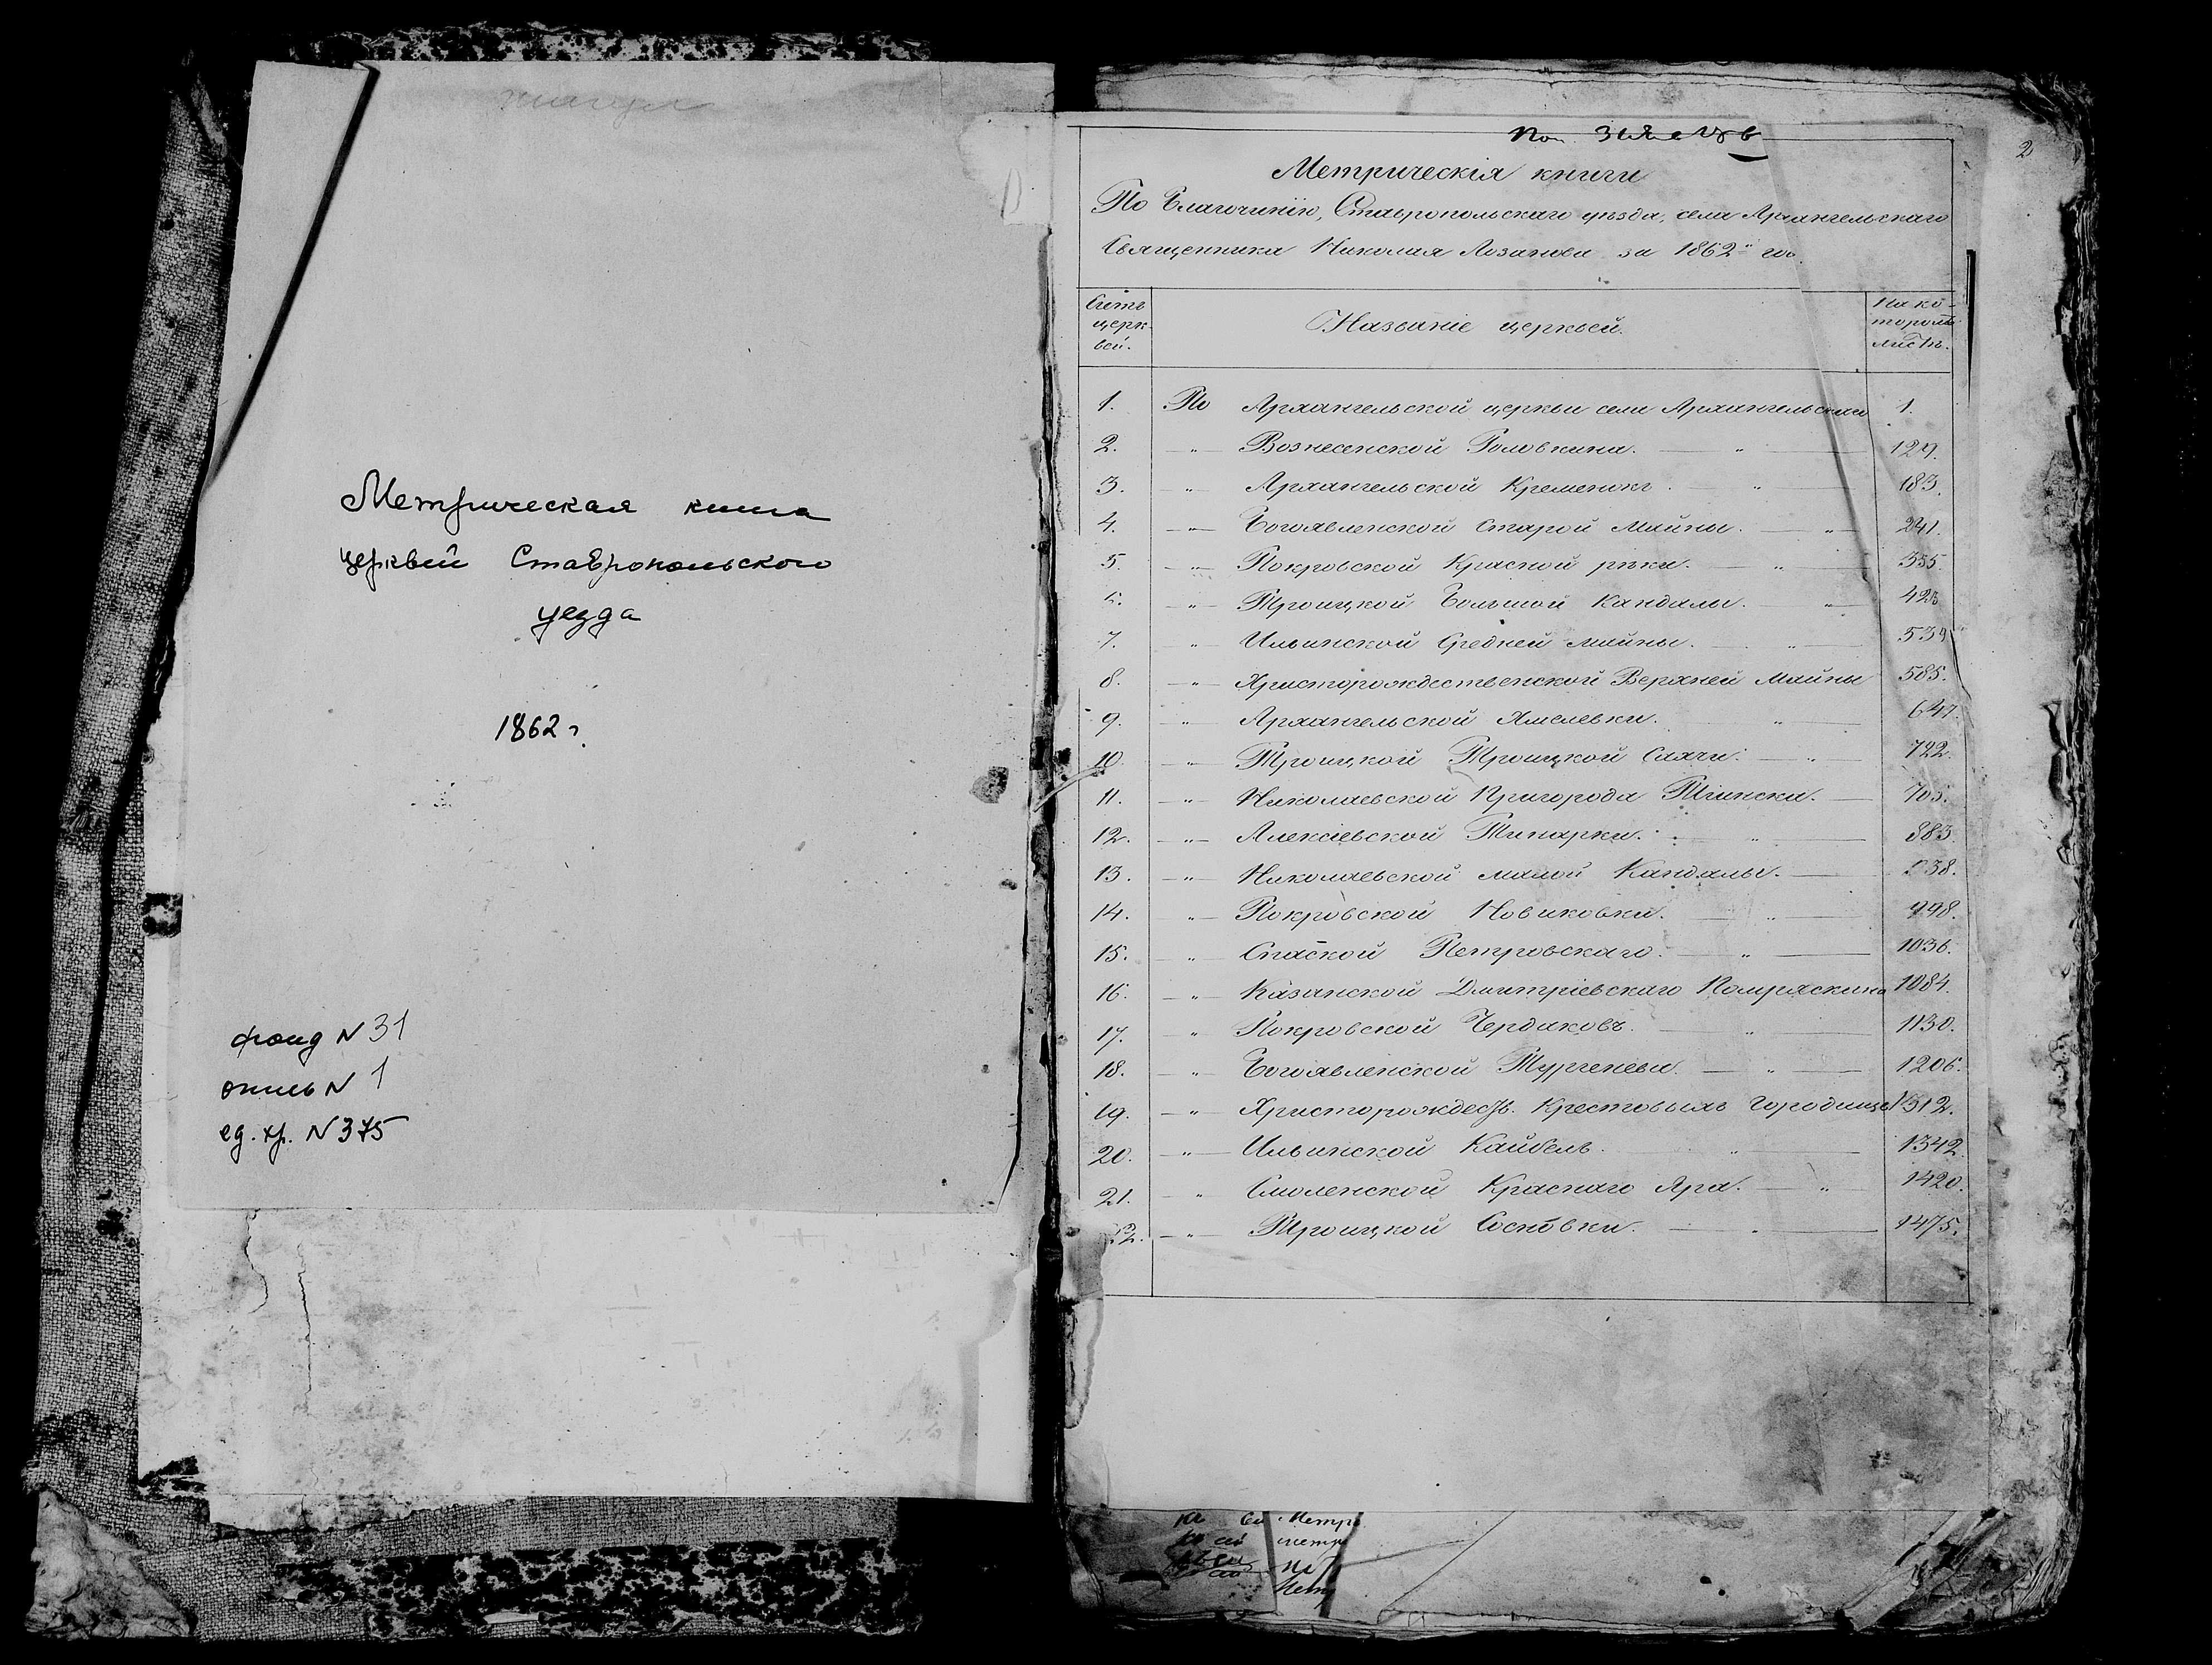 Метрическая книга
церквей Ставропольского
уезда
1862 г.
фонд N 31
опись N 1
ед. хр. N 375
2
Метрическія книги
По Благочинію, Ставропольскаго уѣзда, села Архангельскаго
Священника Николая Лозанова за 1862й год.
Счетъ церк-вей. Названіе церквей. На ко-торомъ листѣ.
1. По Архангельской церкви села Архангельскаго 1.
2. -"- Вознесенской Головкина. -"- 129.
3. " Архангельской Кременокъ. " 183.
4. -"- Богоявленской Старой Майны. -"- 241.
5. -"- Покровской Красной рѣки. -"- 355.
6. -"- Троицкой Большой Кандалы. "- 423
7. "- Ильинской Средней Майны. -"- 539
8. -"- Христорождественской Верхней Майны 585.
9. " Архангельской Хмелевки. "- 647.
10. "- Троицкой Троицкой Сахчи. -"- 722.
11. -"- Николаевской Пригорода Тіинска. -
12. -"- Алексіевской Тинарки. "- 883.
13. -"- Николаевской малой Кандалы. - 938.
14. "- Покровской Новиковки. -" 998.
15. " Спаской Петровскаго. -"- 1036.
16. -"- Казанской Дмитріевскаго Помряскина 1084.
17. -" Покровской Чердаковъ. -" 1130.
18. -"- Богоявленской Тургенева. -"- 1206.
19. -"- Христорождеств. Крестовыхъ Городищъ 1312.
20. -"- Ильинской Кайбелъ. "- 1342.
21. -" Смоленской Краснаго Яра. -" 1420.
22. -"- Троицкой Сосновки. -"- 1475.